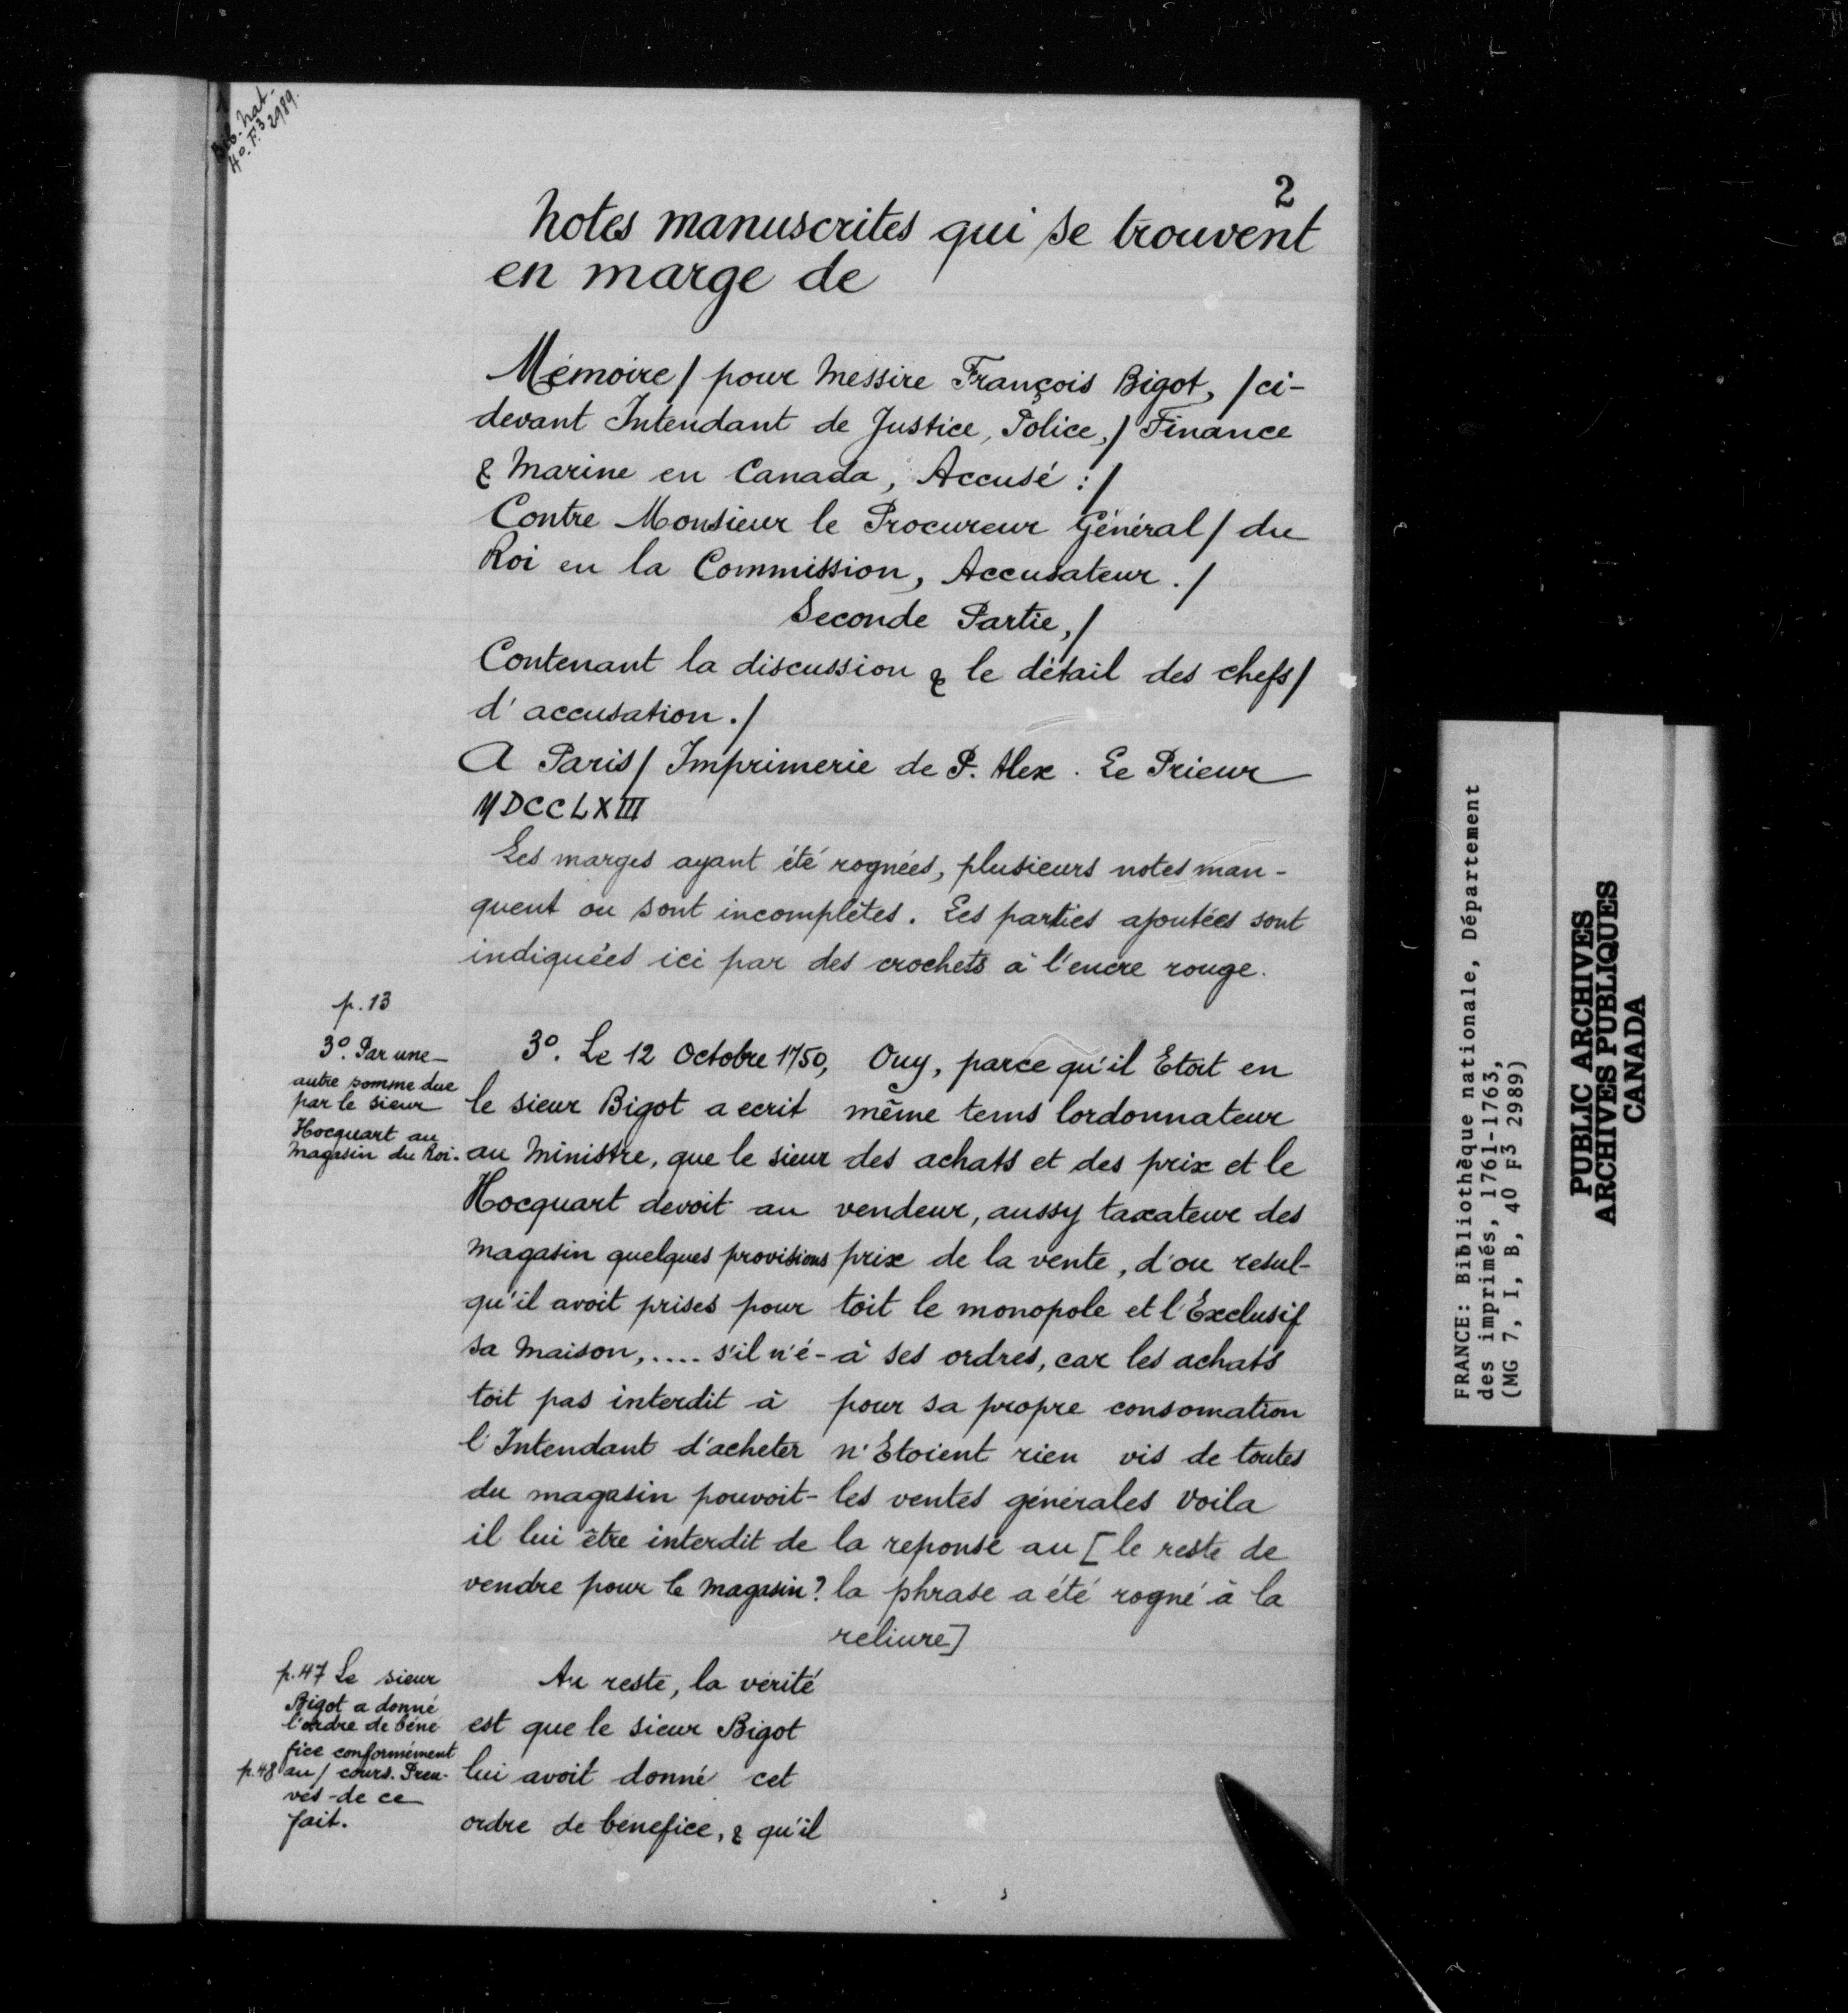 Bib. Nat.
4º. F.3 2989.
2
Notes manuscrites qui se trouvent
en marge de
Mémoire / pour Messire François Bigot, / ci-
devant Intendant de Justice, Police, / Finance
& Marine en Canada, Accusé : /
Contre Monsieur le Procureur Général / du
Roi en la Commission, Accusateur . /
Seconde Partie, /
Contenant la discussion & le détail des chefs /
d'accusation . /
A Paris / Imprimerie de P. Alex . Le Prieur
MDCCLXIII
Les marges ayant été rognées, plusieurs notes man-
quent ou sont incomplètes. Les parties ajoutées sont
indiquées ici par des crochets à l'encre rouge.
p. 13
3º. Par une
autre somme due
par le sieur
Hocquart au
Magasin du Roi.
3º. Le 12 Octobre 1750,
le sieur Bigot a ecrit
au Ministre, que le sieur
Hocquart devoit au
magasin quelques provisions
qu'il avoit prises pour
sa Maison, .... s'il n'é-
toit pas interdit à
l'Intendant d'acheter
du magasin pouvoit-
il lui être interdit de
vendre pour le Magasin ?
Ouy, parce qu'il Etoit en
même tems lordonnateur
des achats et des prix et le
vendeur, aussy taxateur des
prix de la vente, d'ou resul-
toit le monopole et l'Exclusif
à ses ordres, car les achats
pour sa propre consomation
n'Etoient rien vis de toutes
les ventes générales voila
la reponse au [ le reste de
la phrase a été rogné à la
reliure ]
p. 47 Le sieur
Bigot a donné
l'ordre de béné
fice conformément
p. 48 au / cours. Preu-
ves de ce
fait.
Au reste, la vérité
est que le sieur Bigot
lui avoit donné cet
ordre de bénéfice, & qu'il
FRANCE: Bibliothèque nationale, Département
des imprimés, 1761-1763,
(MG 7, I, B, 40 F3 2989)
PUBLIC ARCHIVES
ARCHIVES PUBLIQUES
CANADA